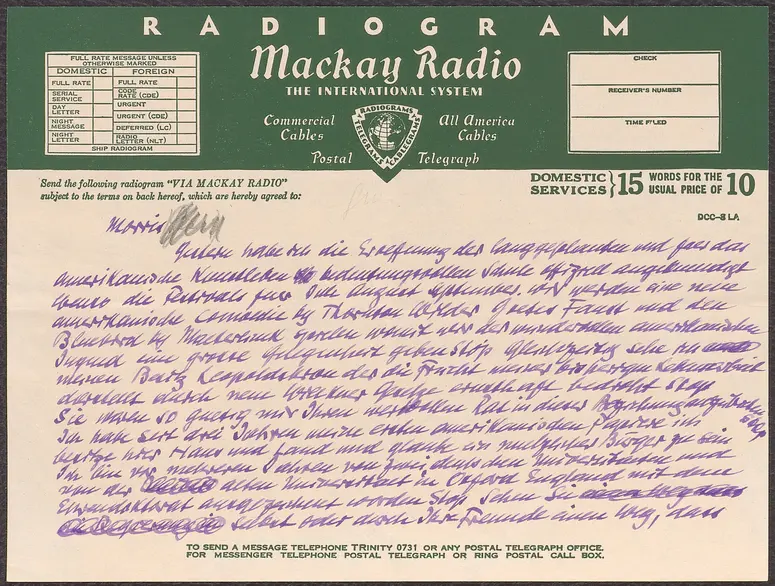 RADIOGRAM
FULL RATE MESSAGE UNLESS
OTHERWISE MARKED
DOMESTIC FOREIGN
FULL RATE FULL RATE
SERIAL SERVICE CODE RATE (CDE)
DAY LETTER URGENT
URGENT (CDE)
NIGHT MESSAGE DEFERRED (LC)
NIGHT LETTER RADIO LETTER (NLT)
SHIP RADIOGRAM
Mackay Radio
THE INTERNATIONAL SYSTEM
Commercial Cables
All America Cables
RADIOGRAMS
TELEGRAMS CABLEGRAMS
Postal Telegraph
CHECK
RECEIVER'S NUMBER
TIME FILED
Send the following radiogram "VIA MACKAY RADIO"
subject to the terms on back hereof, which are hereby agreed to:
DOMESTIC SERVICES } 15 WORDS FOR THE USUAL PRICE OF 10
DCC-8 LA
Morris
Gestern habe ich die Eroeffnung der langgeplanten und fuer das
amerikanische Kunstleben so bedeutungsvollen Schule offiziell angekuendigt
ebenso die Festivals fuer Juli August September. Wir werden eine neue
amerikanische Comoedie by Thornton Wilder Goetes Faust und den
Bluebird by Maeterlinck womit wir der amerikanischen
Jugend eine grosse Gelegenheit geben Stop Gleichzeitig sehe ich
meinen Besitz Leopoldskron der die Frucht meiner bisherigen Lebensarbeit
darstellt durch neue Gesetze ernsthaft bedroht Stop
Sie waren so guetig mir Ihren wertvollen Rat in dieser Beziehung Stop
Ich habe seit drei Jahren meine ersten amerikanischen Papiere ich
besitze hier Haus und Land und glaube ein nuetzlicher Buerger zu sein
Ich bin vor mehreren Jahren von zwei deutschen Universitaeten und
von der alten Universitaet in Oxford England mit dem
Ehrendoktorat ausgezeichnet worden Stop Sehen Sie
selbst oder durch Ihre Freunde einen Weg, dass
TO SEND A MESSAGE TELEPHONE TRINITY 0731 OR ANY POSTAL TELEGRAPH OFFICE.
FOR MESSENGER TELEPHONE POSTAL TELEGRAPH OR RING POSTAL CALL BOX.